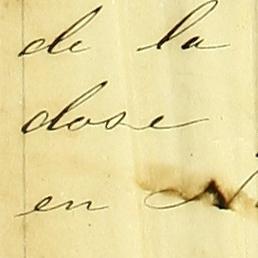 de la
dose
en